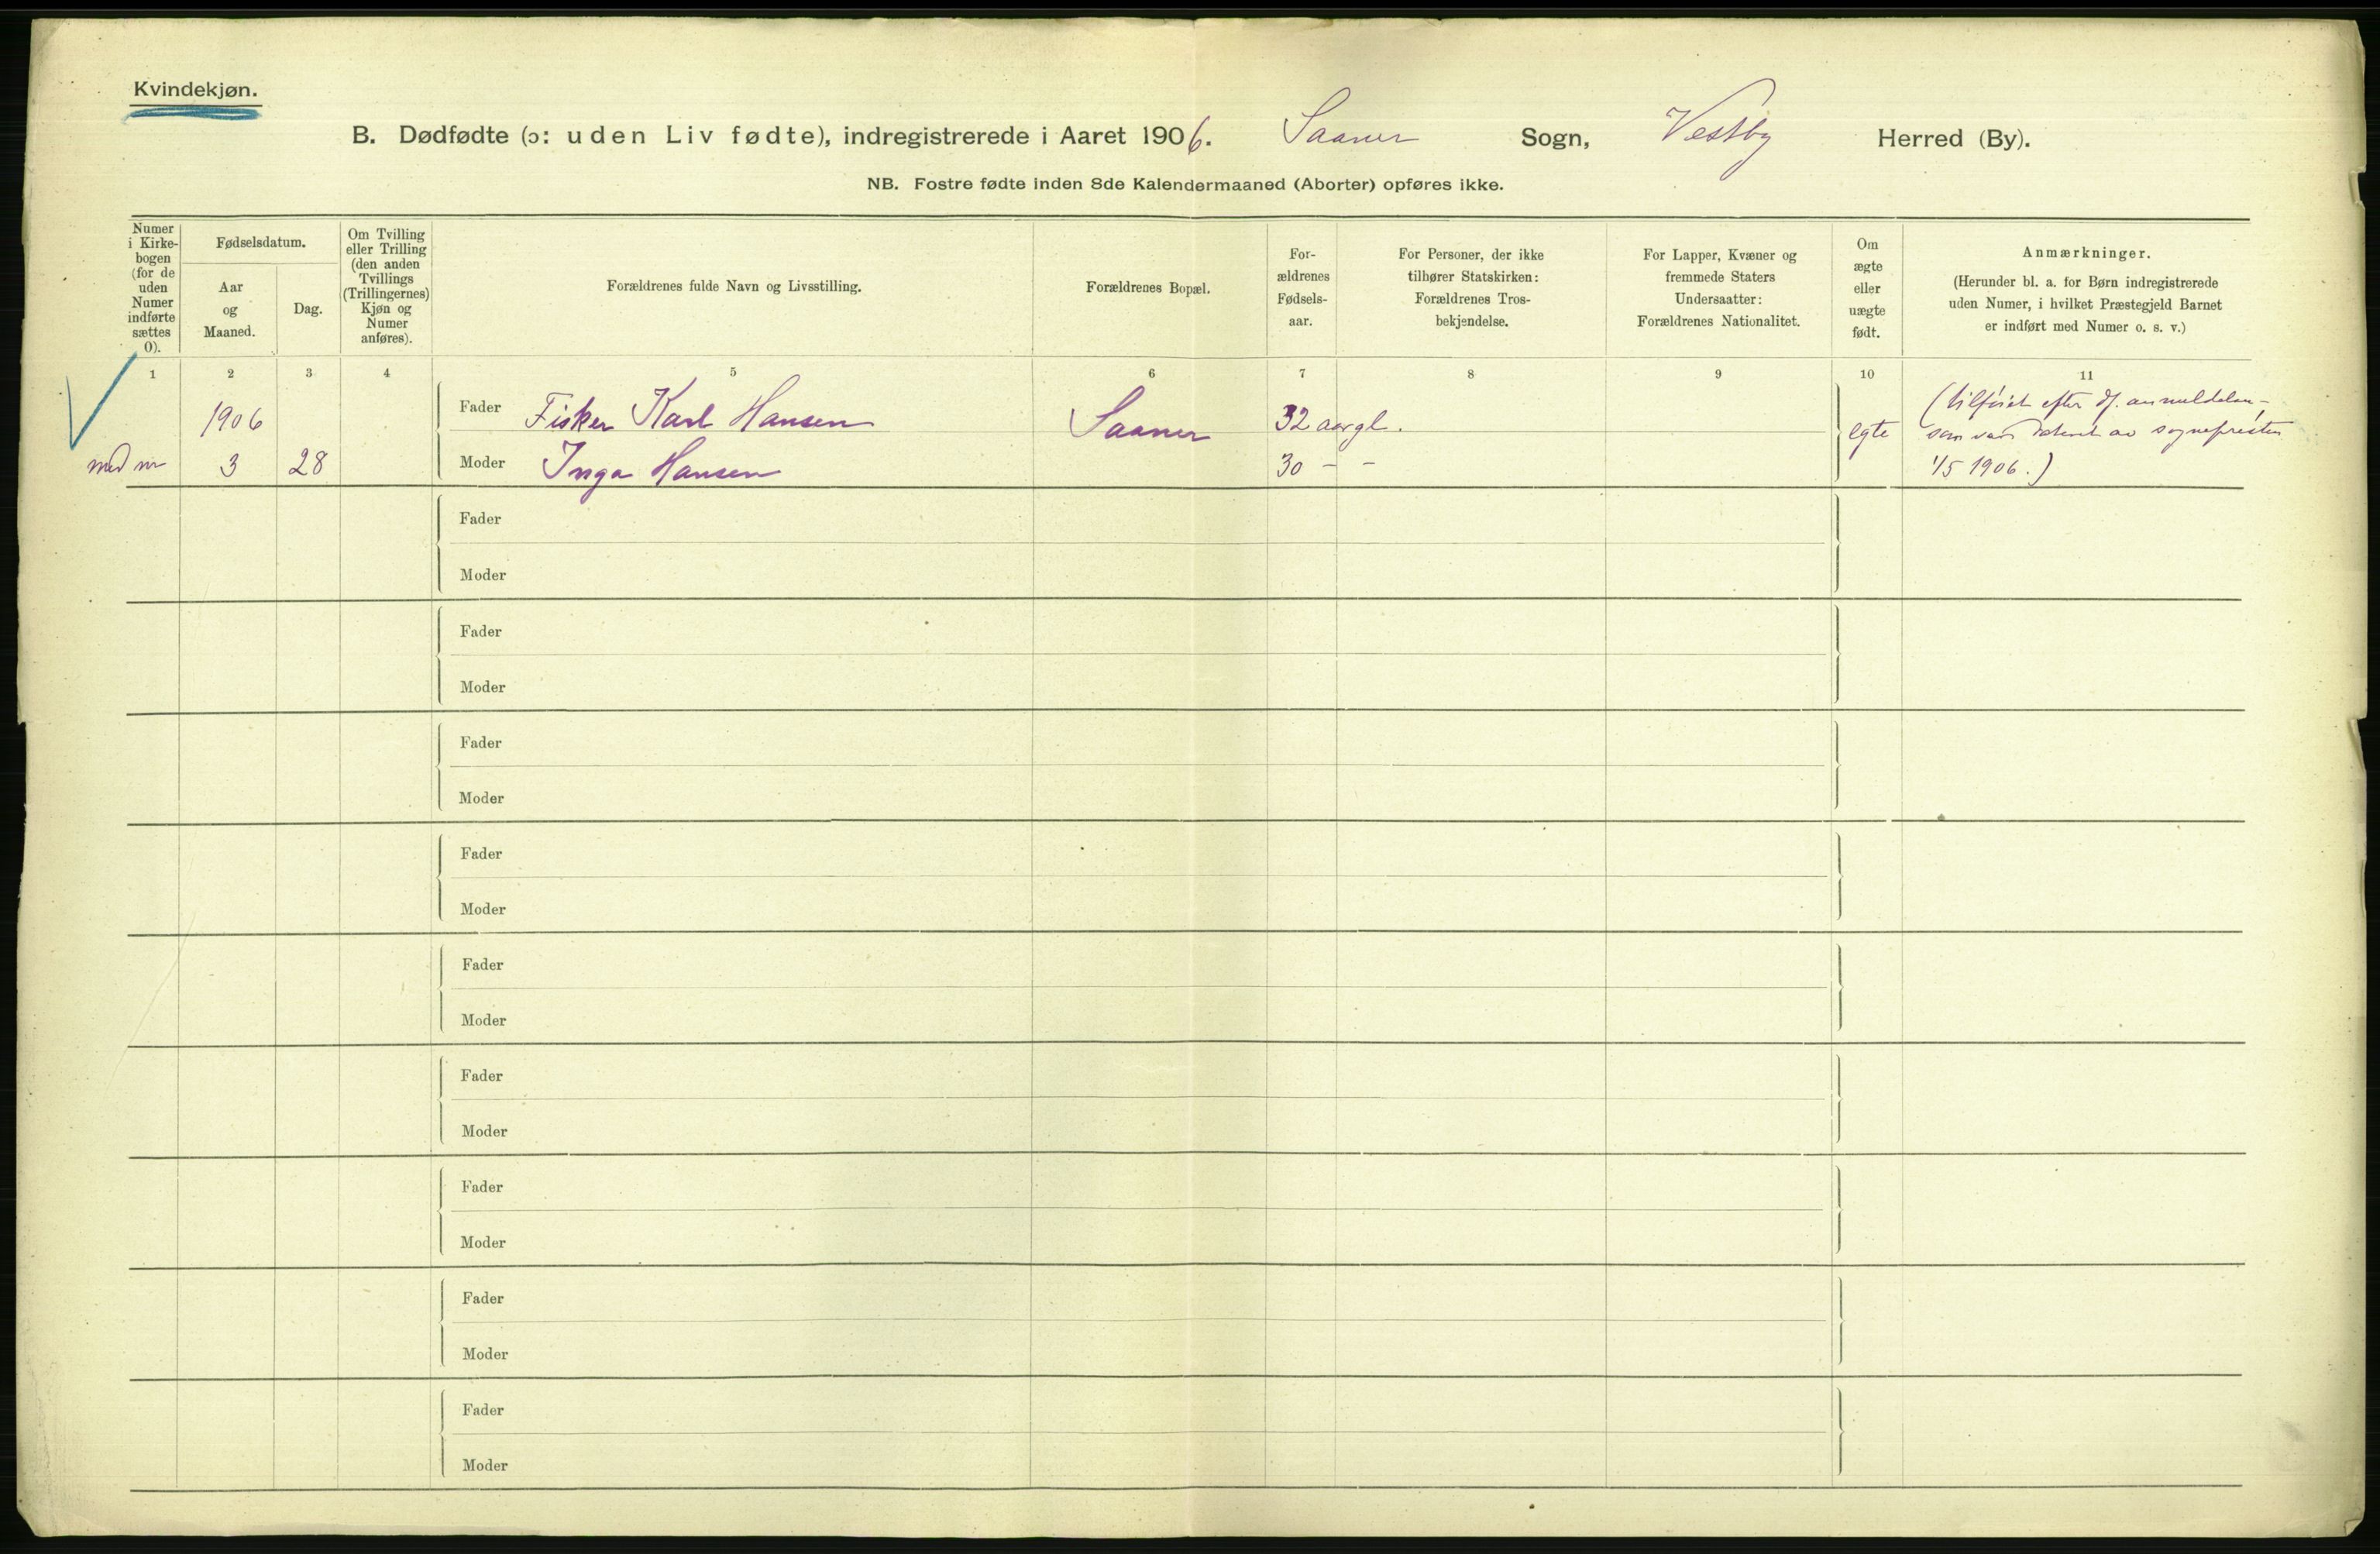 Kvindekjøn.
B. Dødfødte (ɔ: uden Liv fødte), indregistrerede i Aaret 1906. Saaner Sogn, Vestby Herred (By).
NB. Fostre fødte inden 8de Kalendermaaned (Aborter) opføres ikke.
Numer
i Kirke-
bogen
(for de
uden
Numer
indførte
sættes
0).
Fødselsdatum.
Aar
og
Maaned.
Dag.
Om Tvilling
eller Trilling
(den anden
Tvillings
(Trillingernes)
Kjøn og
Numer
anføres).
Forældrenes fulde Navn og Livsstilling.
Forældrenes Bopæl.
For-
ældrenes
Fødsels-
aar.
For Personer, der ikke
tilhører Statskirken:
Forældrenes Tros-
bekjendelse.
For Lapper, Kvæner og
fremmede Staters
Undersaatter:
Forældrenes Nationalitet.
Om
ægte
eller
uægte
født.
Anmærkninger.
(Herunder bl. a. for Børn indregistrerede
uden Numer, i hvilket Præstegjeld Barnet
er indført med Numer o. s. v.)
1 2 3 4 5 6 7 8 9 10 11
1906 Fader Fisker Karl Hansen Saaner 32 aar gl.
med nr 3 28 Moder Inga Hansen 30 - -
egte
(tilføiet efter dj. anmeldelsen,
som var av sognepresten
1/5 1906.)
Fader
Moder
Fader
Moder
Fader
Moder
Fader
Moder
Fader
Moder
Fader
Moder
Fader
Moder
Fader
Moder
Fader
Moder